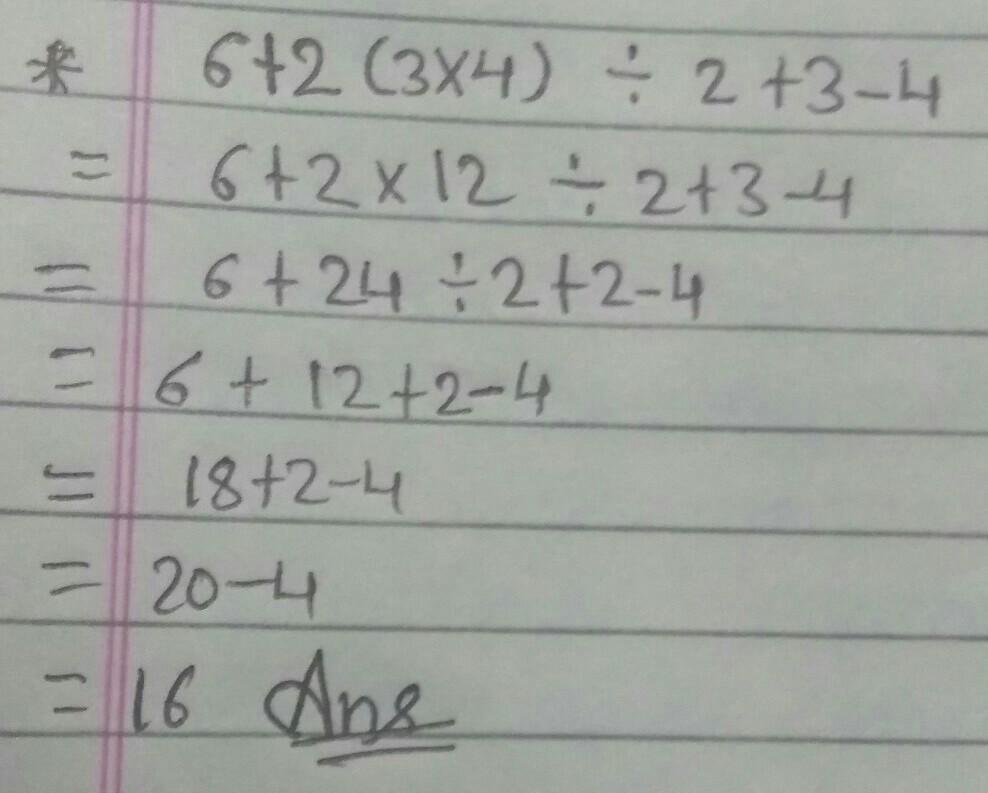 * 6+2 (3×4) ÷ 2 +3-4
= 6+2×12 ÷ 2+3-4
= 6+24 ÷2+2-4
= 6 + 12+2-4
= 18+2-4
= 20-4
= 16 Ans